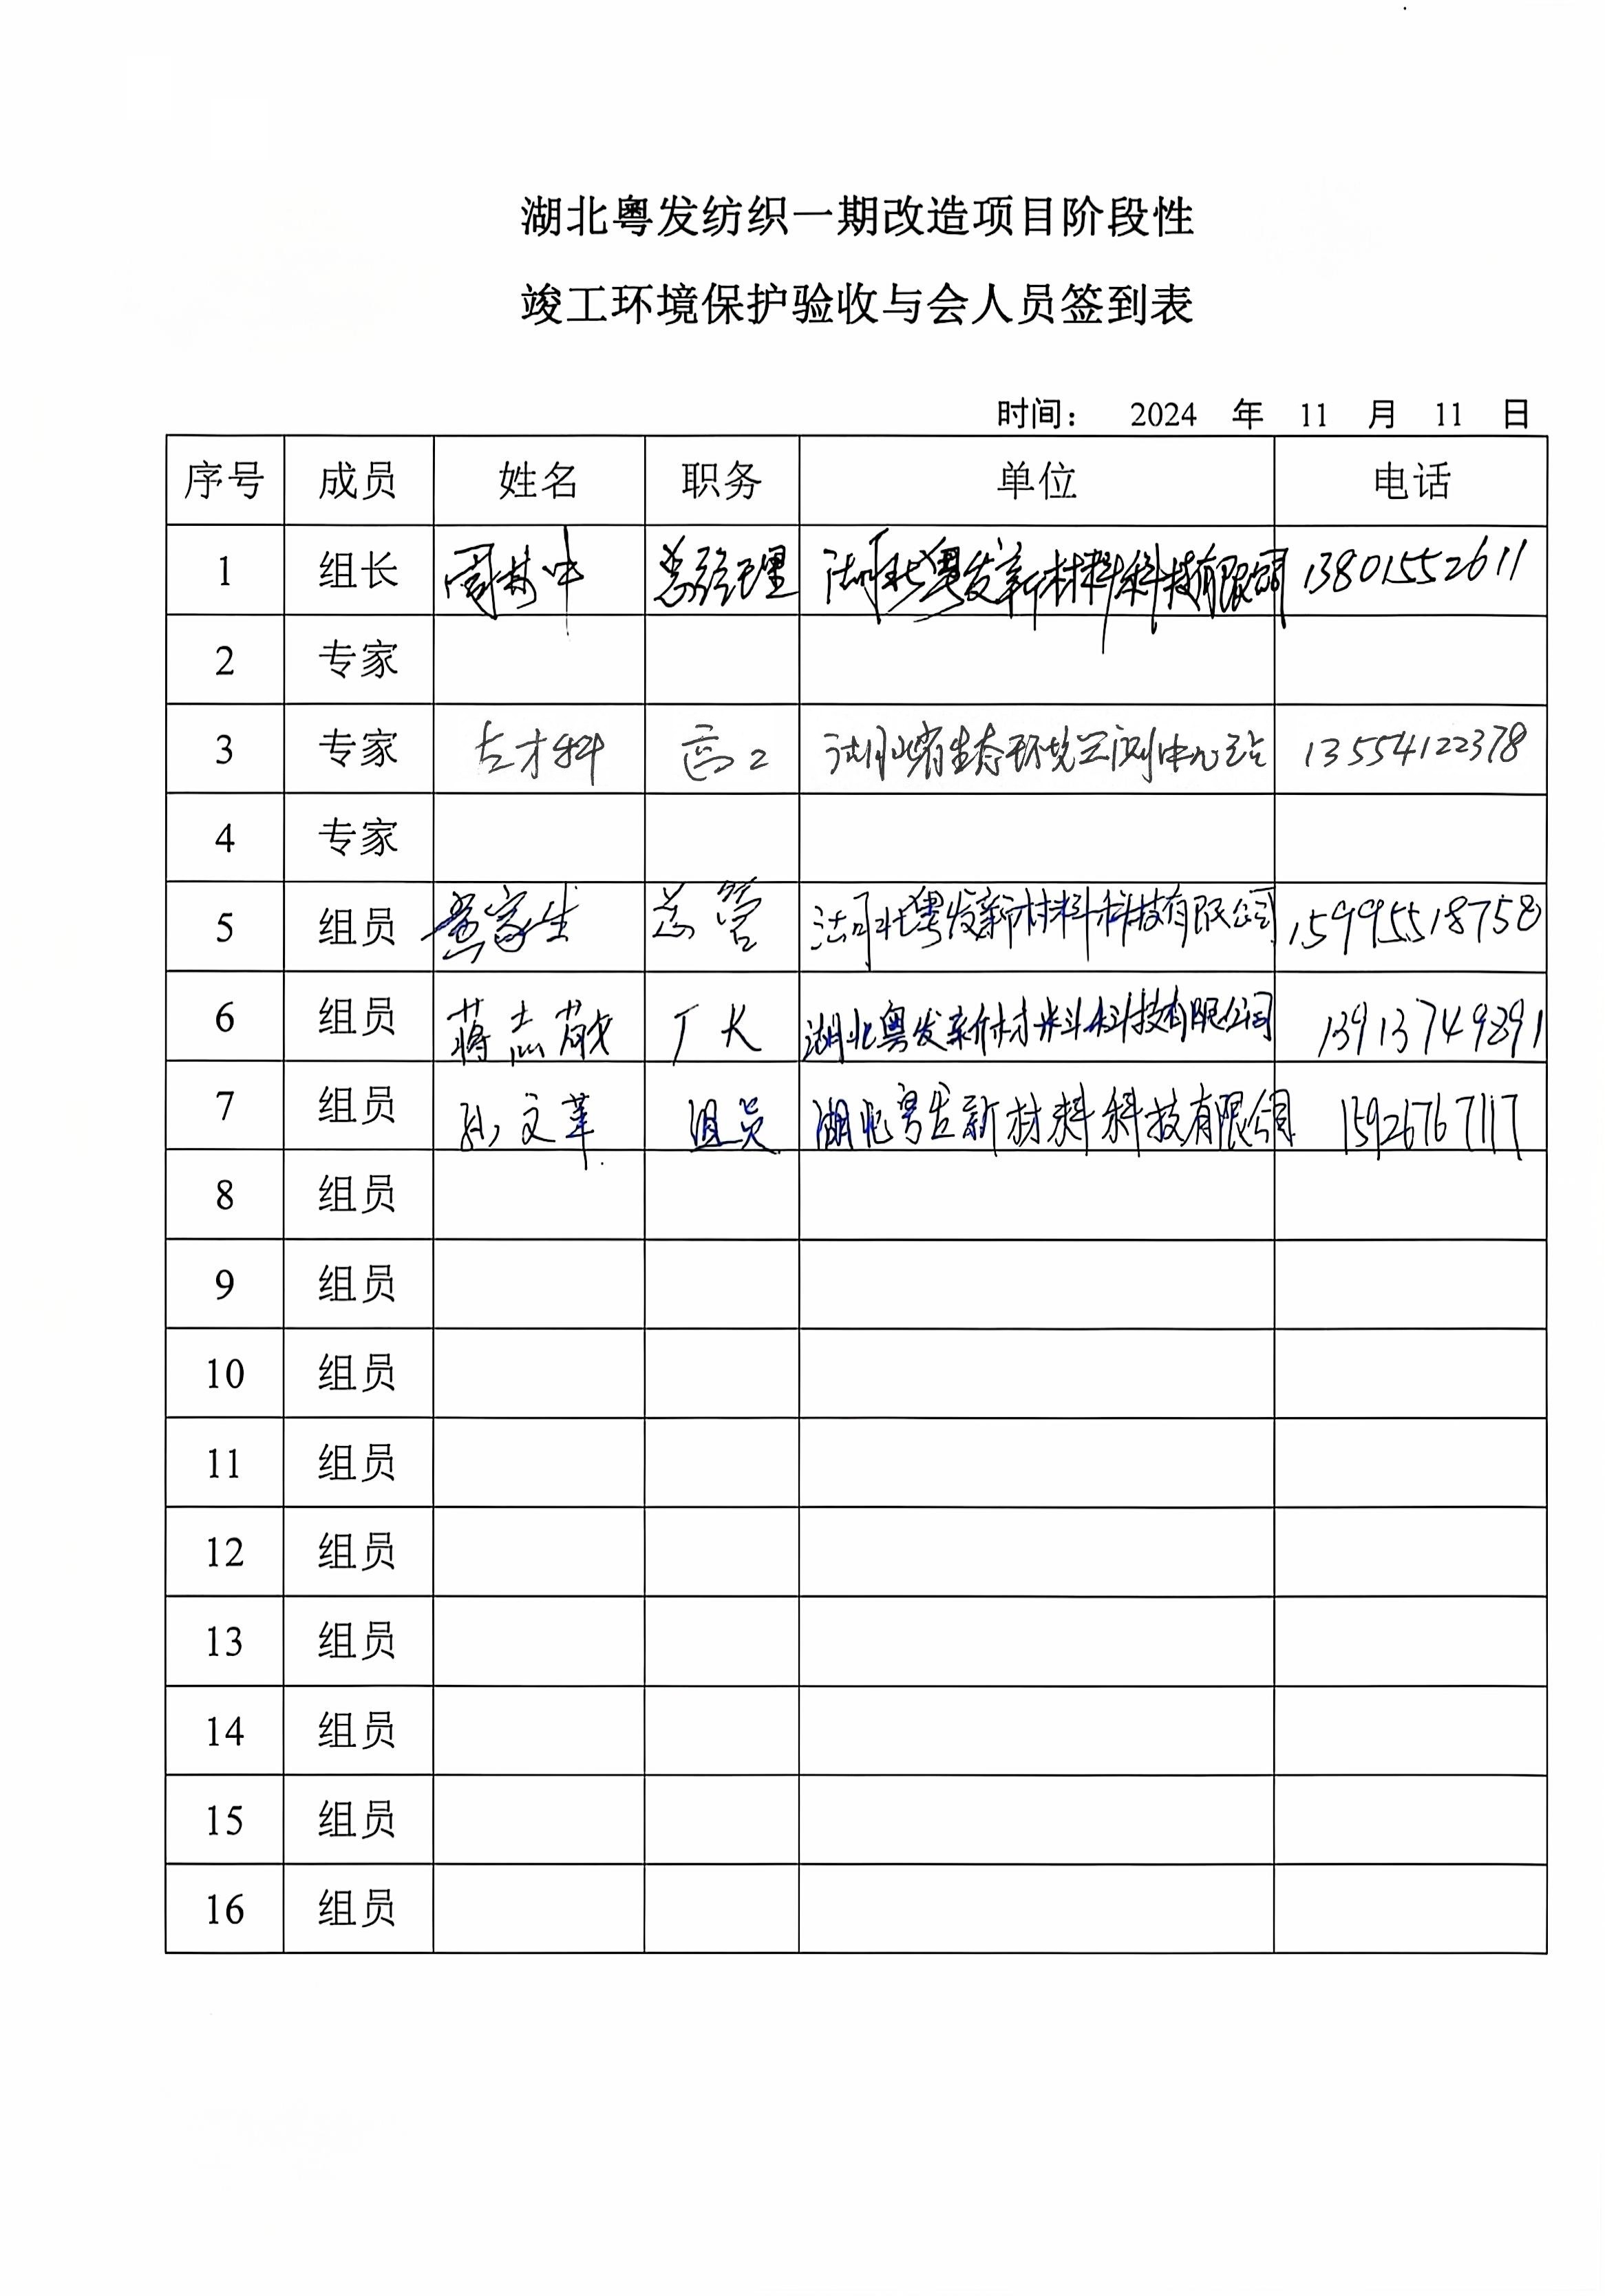 湖北粤发纺织一期改造项目阶段性
竣工环境保护验收与会人员签到表
时间： 2024 年 11 月 11 日
序号 成员 姓名 职务 单位 电话
1 组长 总经理 湖北粤发新材料科技有限公司 13801552611
2 专家
3 专家 古才科 高工 湖北省生态环境监测中心站 13554122378
4 专家
5 组员 家生 总管 湖北粤发新材料科技有限公司 15995518758
6 组员 蒋志敏 厂长 湖北粤发新材料科技有限公司 13913749891
7 组员 孙文革 组员 湖北粤发新材料科技有限公司 15926767117
8 组员
9 组员
10 组员
11 组员
12 组员
13 组员
14 组员
15 组员
16 组员